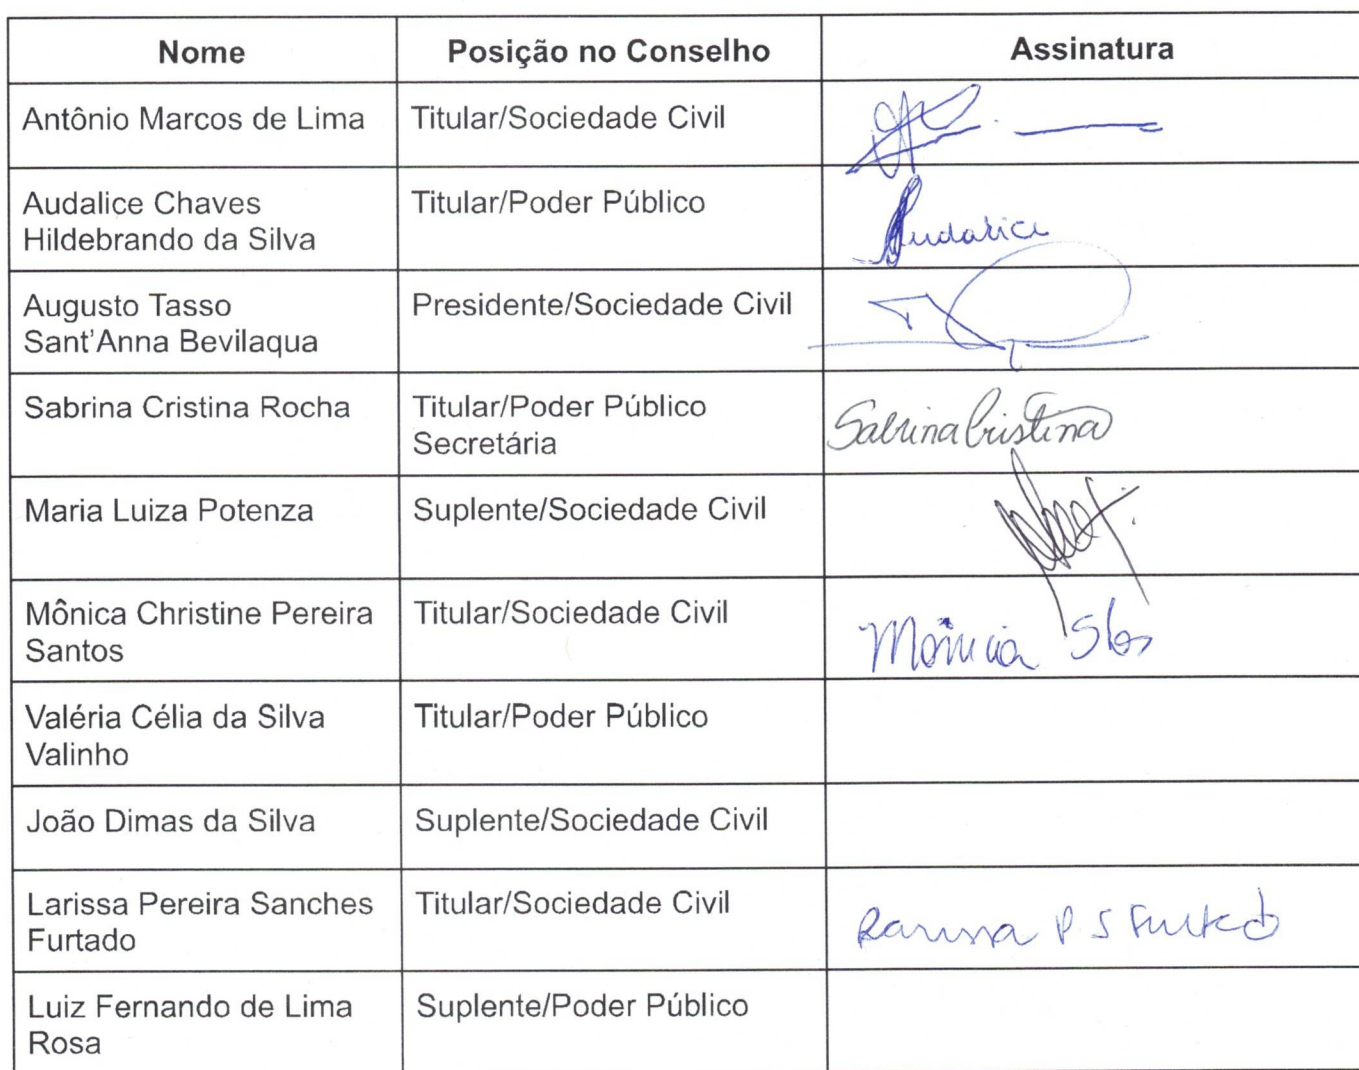 Nome
Posição no Conselho
Assinatura
Antônio Marcos de Lima
Titular/Sociedade Civil
Audalice Chaves
Hildebrando da Silva
Titular/Poder Público
Audalice
Augusto Tasso
Sant'Anna Bevilaqua
Presidente/Sociedade Civil
Sabrina Cristina Rocha
Titular/Poder Público
Secretária
Sabrina Cristina
Maria Luiza Potenza
Suplente/Sociedade Civil
Mônica Christine Pereira
Santos
Titular/Sociedade Civil
Mônica
Valéria Célia da Silva
Valinho
Titular/Poder Público
João Dimas da Silva
Suplente/Sociedade Civil
Larissa Pereira Sanches
Furtado
Titular/Sociedade Civil
Larissa P S Furtado
Luiz Fernando de Lima
Rosa
Suplente/Poder Público